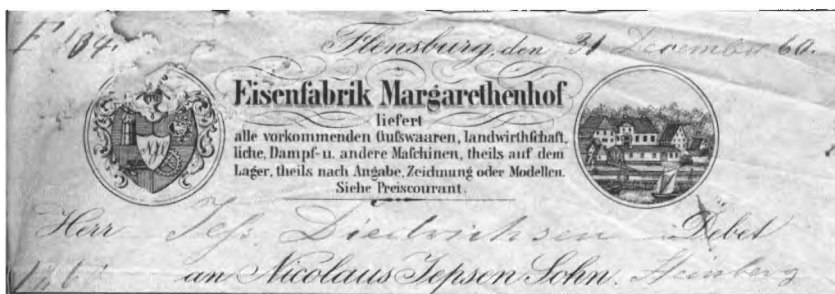 Flensburg, den 31 December 60.
Eisenfabrik Margarethenhof
liefert
alle vorkommenden Gußwaaren, landwirthschaft,
liche, Dampf-u. andere Maschinen, theils auf dem
Lager, theils nach Angabe, Zeichnung oder Modellen.
Siehe Preiscourant.
Herr Jess. Diedrichsen Debet
an Nicolaus Jepsen Sohn. Steinberg